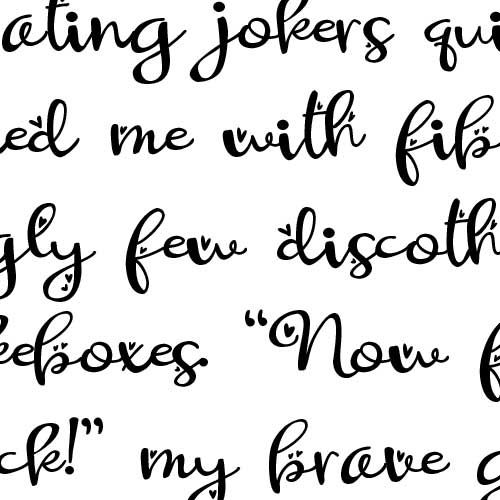 ating jokers qui
ed me with fib
gly few discoth
keboxes. “Now f
ck!” my brave g